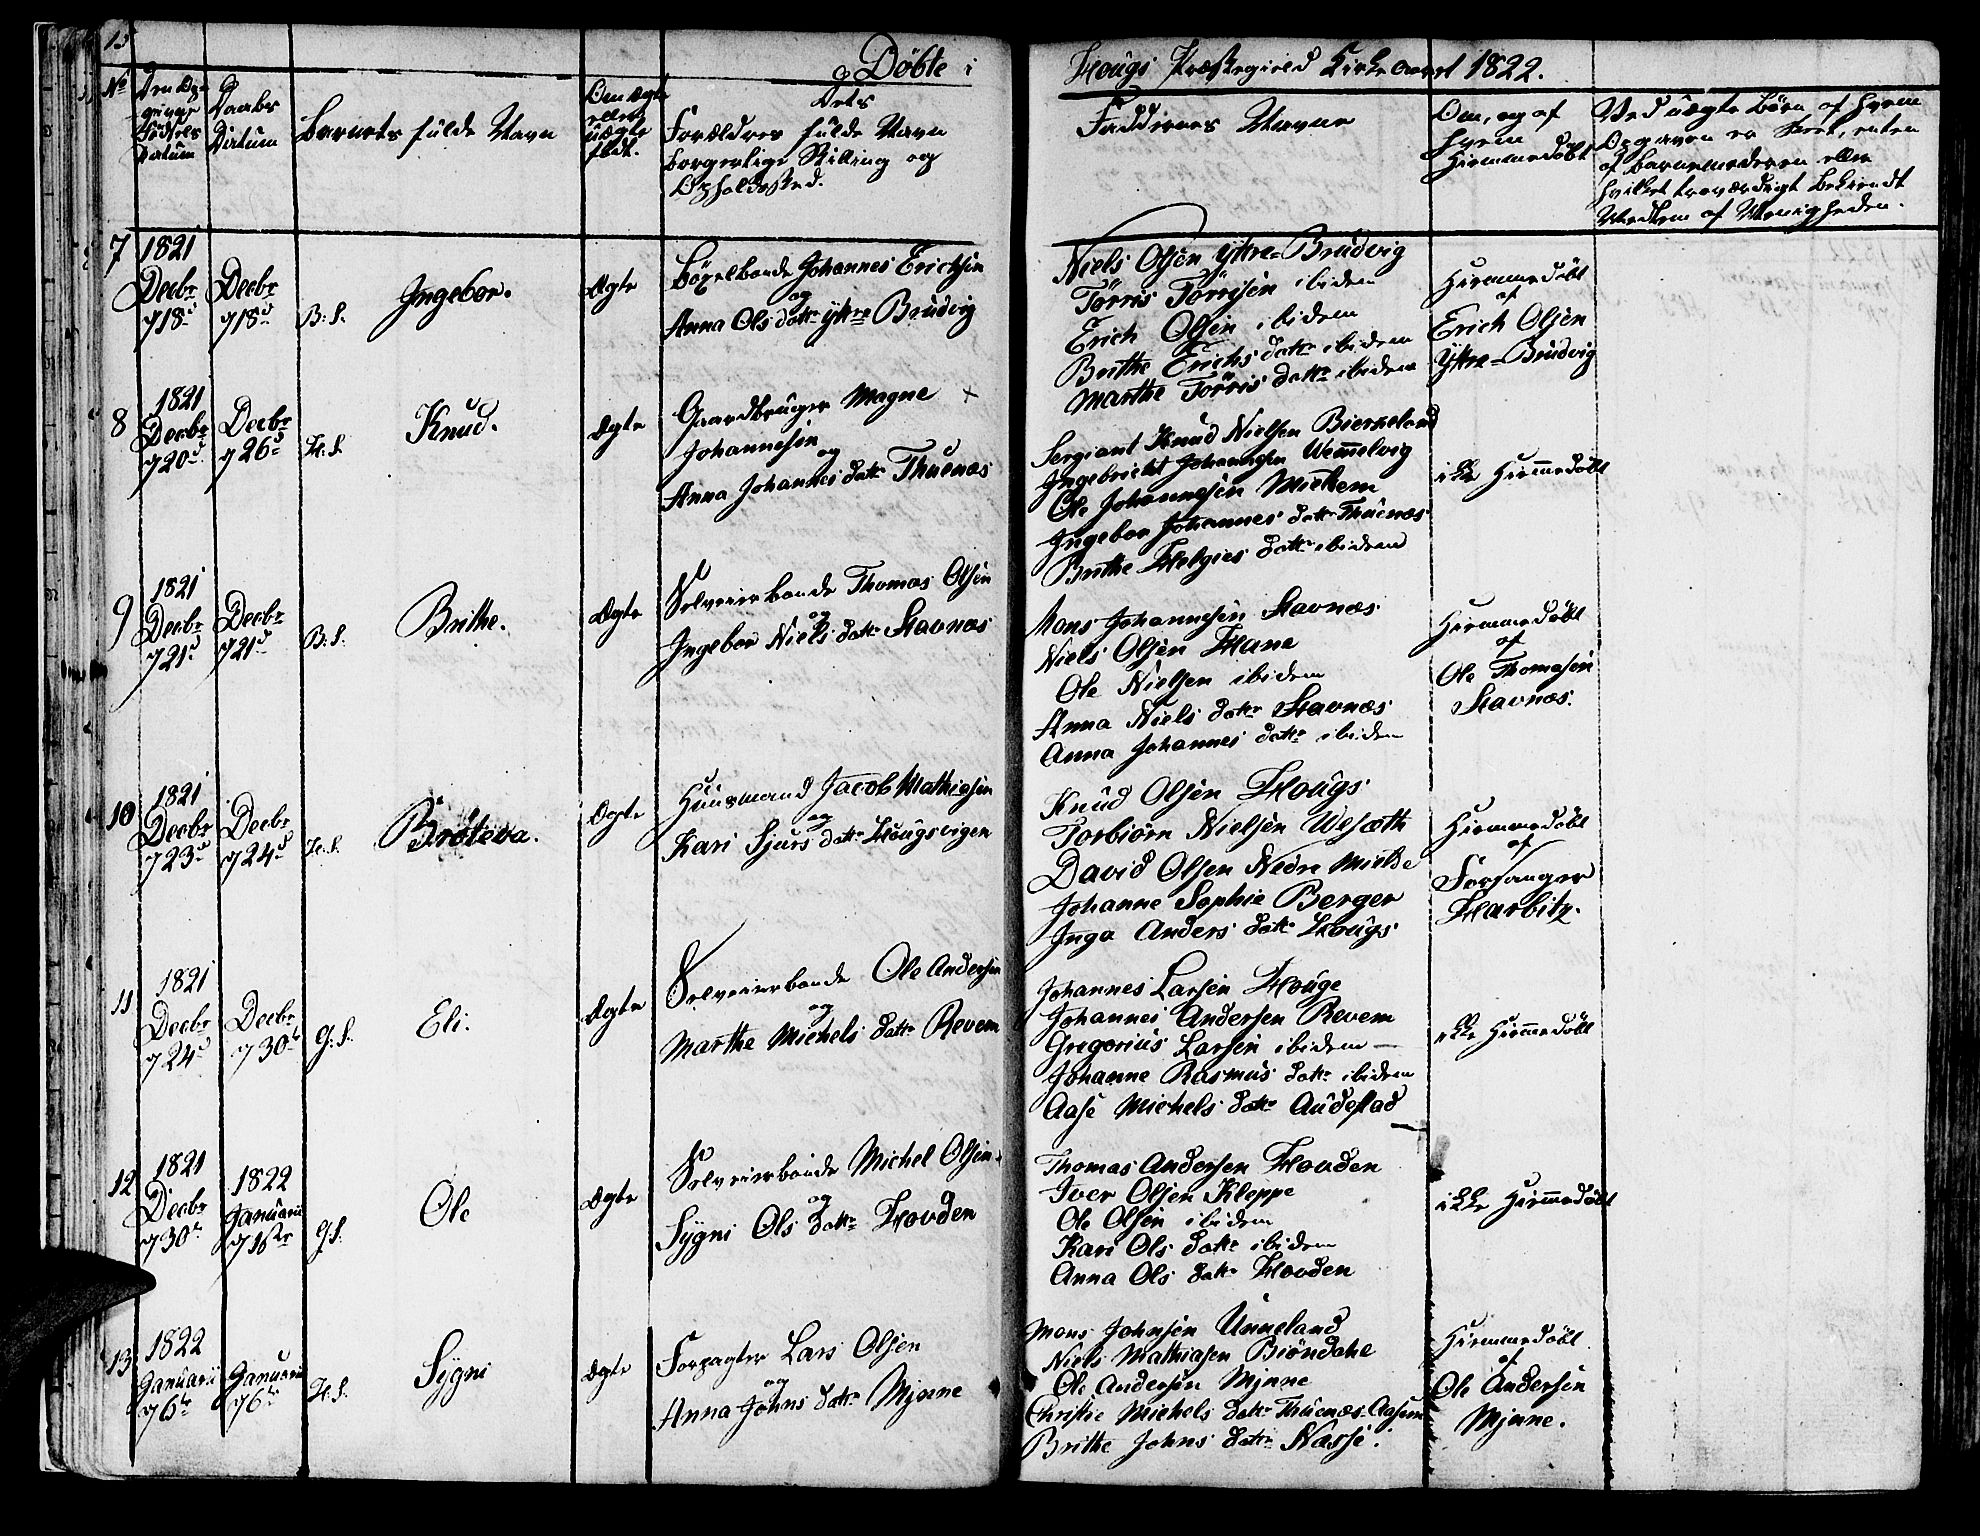 15
Døbte i Hougs Præstegield Kirke aaret 1822.
No
Den Op-
givne
Fødsels
Datum
Daabs
Datum
Barnets fulde Navn
Om ægte
eller
uægte
født.
Dets
Forældres fulde Navn
borgerlige Stilling og
Opholdssted.
Faddernes Navne
Om, og af
hvem
Hiemmedøbt
Ved uægte Børn af hvem
Opgaven er skeet, enten
af Barnemoderen eller
hvilket troværdigt bekiendt
Medlem af Menigheden.
7
1821
Decbr
18d
Decbr
18d
B: S.
Ingebor.
Ægte
Bøxelbonde Johannes Erichsen
og
Anna Ols datter Yttre Brudvig
Niels Olsen Yttre-Brudvig
Tørris Torrisen ibidem
Erich Olsen ibidem
Brithe Erichs datter ibidem
Marthe Tørris datter ibidem
Hiemmedøbt
af
Erich Olsen
Yttre-Brudvig
8
1821
Decbr
20d
Decbr
26d
H. S.
Knud.
Ægte
Gaardbruger Magne
Johannesen
og
Anna Johannes datter Thuenæs
Sergiant Knud Nielsen Bierkeland
Ingebricht Johannesen Wemmelvig
Ole Johannesen Mieltem
Ingebor Johannes datter Thuenæs
Brithe Helgies datter ibidem
ikke Hiemmedøbt
9
1821
Decbr
21d
Decbr
21d
B: S.
Brithe.
Ægte
Selveierbonde Thomas Olsen
og
Ingebor Niels datter Stavnæs
Mons Johannesen Stavnæs
Niels Olsen Hane
Ole Nielsen ibidem
Anna Niels datter Stavnæs
Anna Johannes datter ibidem
Hiemmedøbt
af
Ole Thomesen
Stavnæs.
10
1821
Decbr
23d
Decbr
24d
H. S.
Brôteva.
Ægte
Huusmand Jacob Mathiesen
og
Kari Sjurs datter Hougsvigen
Knud Olsen Hougs
Torbiørn Nielsen Wesæth
David Olsen Nedre Mielde
Johanne Sophie Berger
Inga Anders datter Hougs
Hiemmedøbt
af
Forsanger
Harbitz.
11
1821
Decbr
24d
Decbr
30te
G: S.
Eli.
Ægte
Selveierbonde Ole Andersen
og
Marthe Michels datter Revem
Johannes Larsen Houge
Johannes Andersen Revem
Gregorius Larsen ibidem
Johanne Rasmus datter ibidem
Aase Michels datter Audestad
ikke Hiemmedøbt
12
1821
Decbr
30te
1822
Januarii
1ste
G: S.
Ole
Ægte
Selveierbonde Michel Olsen
og
Sygni Ols datter Hovden
Thomas Andersen Hovden
Iver Olsen Kleppe
Ole Olsen ibidem
Kari Ols datter ibidem
Anna Ols datter Hovden
ikke Hiemmedøbt
13
1822
Januarii
6te
Januarii
6te
H. S.
Sygni
Ægte
Forpagter Lars Olsen
og
Anna Johns datter Mjnne
Mons Johnsen Unneland
Niels Mathiasen Biöndahl
Ole Andersen Mjnne
Christie Michels datter Thuenæs-Aasem
Brithe Johns datter Nasse.
Hiemmedøbt
af
Ole Andersen
Mjnne.